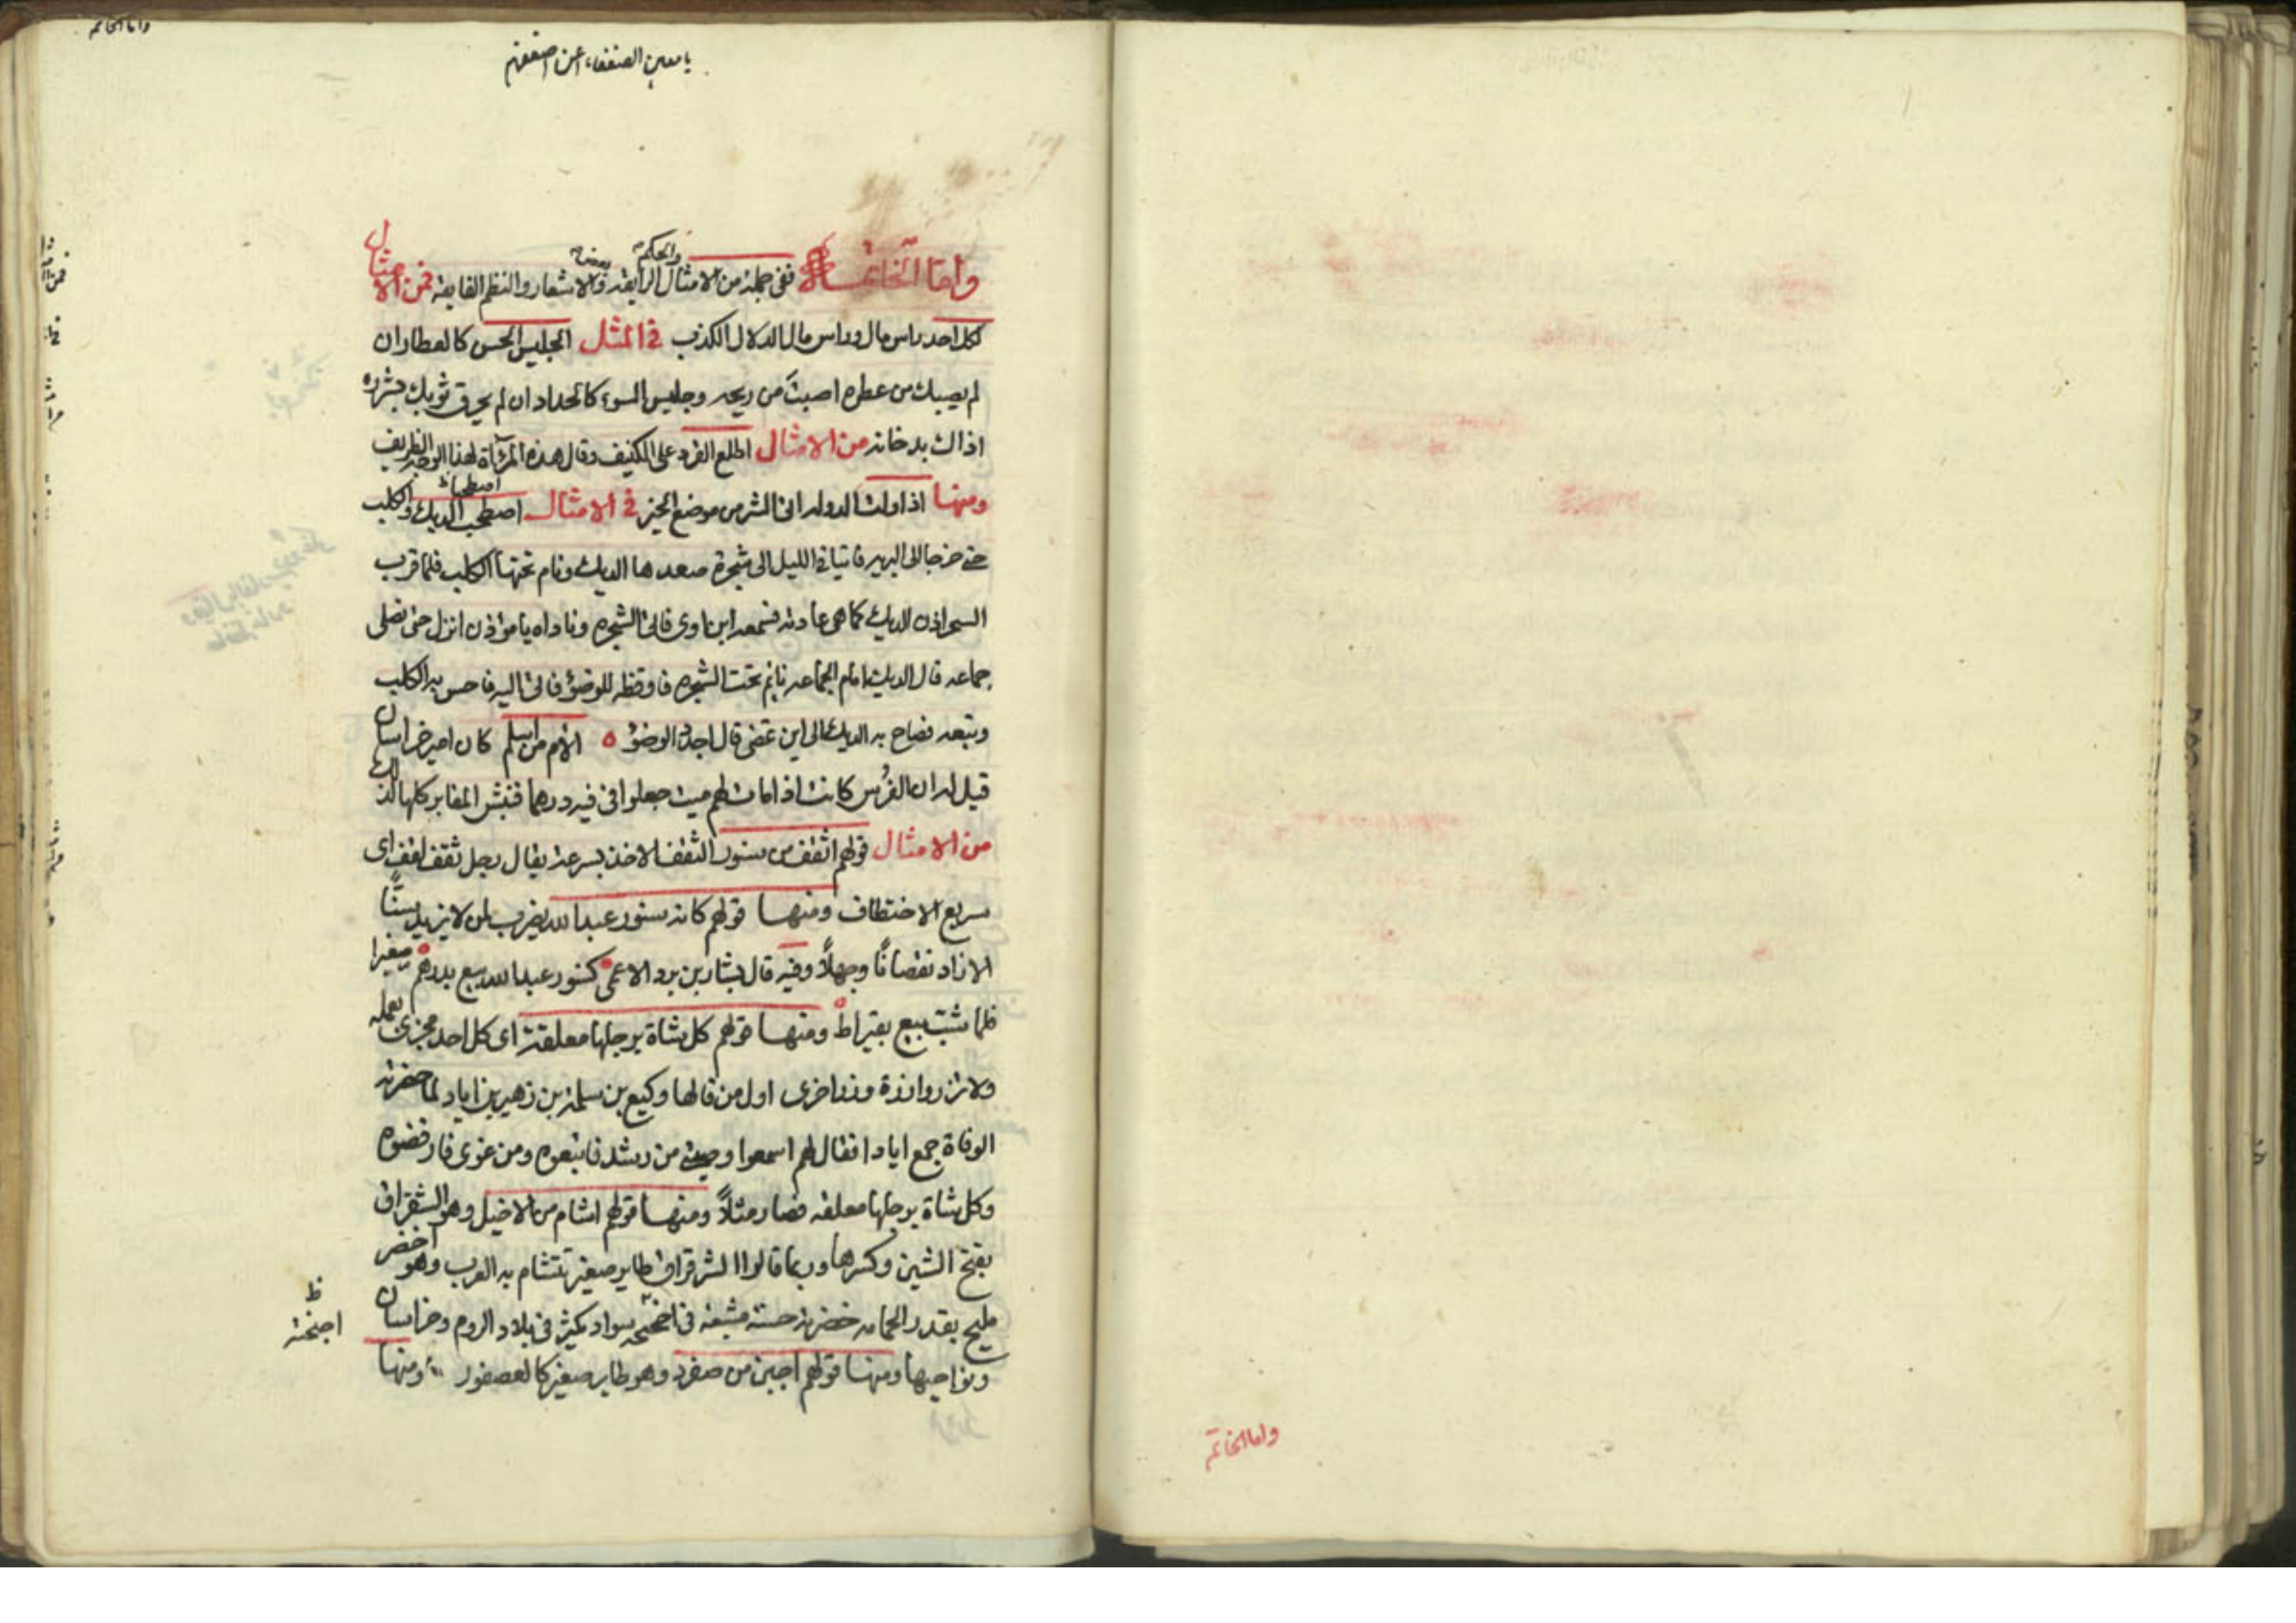 واما الخاتمة
يا معين الضعفاء اعن اضعفهم
واما الخاتمة ففي جملة من الامثال الرايقه والحكم وبعض الاشعار والنظم الفايقه فمن الامثال
لكل احد راس مال وراس مال الدلال الكذب في المثل الجليس الحسن كالعطار ان
لم يصبك من عطره اصبت من ريحه وجليس السوء كالحداد ان لم يحرق ثوبك بشرره
اذاك بدخانه من الامثال اطلع القرد على الكنيف وقال هذه المرآة لهذا الوجه الظريف
ومنها اذا ولت الدوله اتى الشر من موضع الخير في الامثال اصطحب الديك والكلب
حتى خرجا الى البريه فاتيا في الليل الى شجرة صعدها الديك ونام تحتها الكلب فلما قرب
السحر اذن الديك كما هي عادته فسمعه ابن اوى فاتى الشجره وناداه يا مؤذن انزل حتى نصلى
جماعه قال الديك امام الجماعه نايم تحت الشجره فاوقظه للوضؤ فاتى اليه فاحس به الكلب
وتبعه فصاح به الديك الى اين تمضى قال اجدد الوضؤ الأم من اسلم كان امير خراسان
قيل له ان الفرس كانت اذا مات لهم ميت جعلوا في فيه درهما فنبش المقابر كلها لذلك
من الامثال قولهم اثقف من سنور الثقف الاخذ بسرعة يقال رجل ثقف لقف اى
سريع الاختطاف ومنها قولهم كانه سنور عبد الله يضرب لمن لا يزيد سنًّا
الا زاد نقصانًا وجهلاً وفيه قال بشار بن برد الاعمى كسنور عبد الله بيع بدرهم صغيرا
فلما شب بيع بقيراط ومنها قولهم كل شاة برجلها معلقة اى كل احد مجزى بعمله
ولا تزر وازرة وزر اخرى اول من قالها وكيع بن سلمة بن زهير بن اياد لما حضرته
الوفاة جمع ايادا فقال لهم اسمعوا وصيتى من رشد فاتبعوه ومن غوى فارفضوه
وكل شاة برجلها معلقه فصار مثلاً ومنها قولهم اشام من الاخيل وهو الشقراق
بفتح الشين وكسرها وربما قالوا الشرقراق طاير صغير تتشام به العرب وهو اخضر
مليح بقدر الحمامه خضرته حسنه مشبعه في اجنحته سواد يكثر في بلاد الروم وخراسان
ونواحيها ومنها قولهم اجبن من صفرد وهو طاير صغير كالعصفور ومنها
ظ
اجنحته
واما الخاتمة